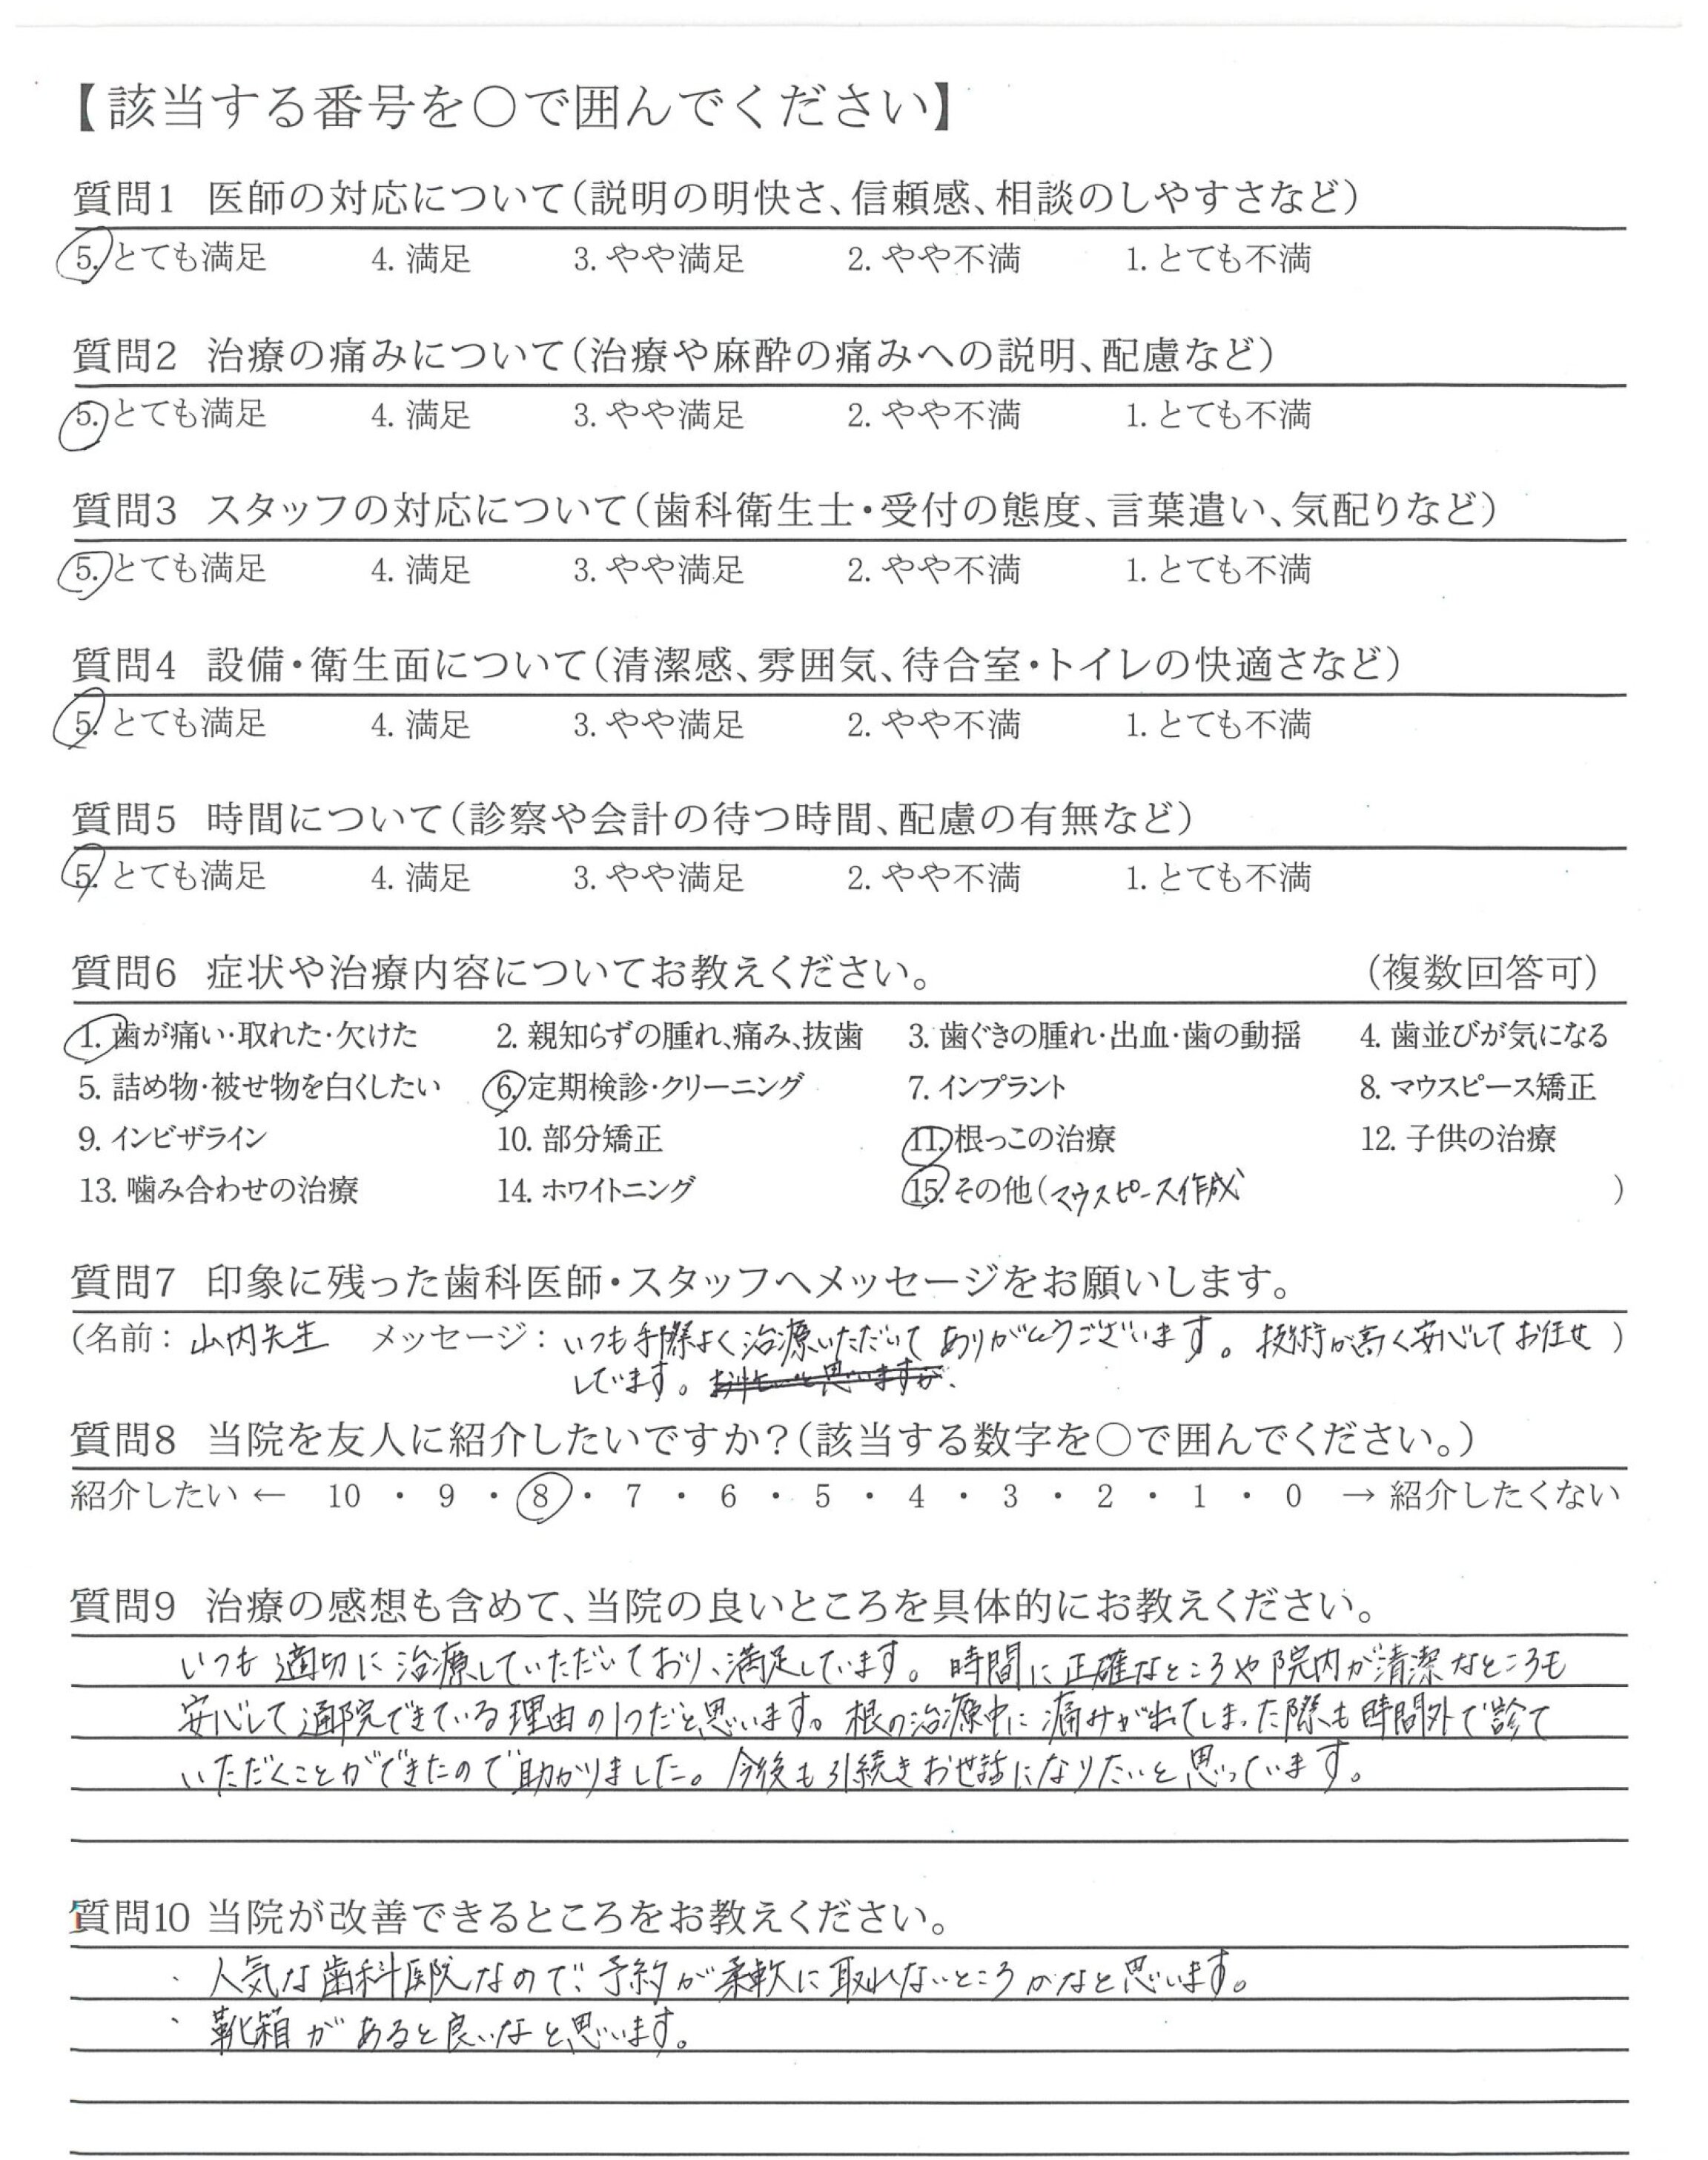 【該当する番号を○で囲んでください】
質問1 医師の対応について(説明の明快さ、信頼感、相談のしやすさなど)
5. とても満足 4. 満足 3. やや満足 2. やや不満 1. とても不満
質問2 治療の痛みについて(治療や麻酔の痛みへの説明、配慮など)
5. とても満足 4. 満足 3. やや満足 2. やや不満 1. とても不満
質問3 スタッフの対応について(歯科衛生士・受付の態度、言葉遣い、気配りなど)
5. とても満足 4. 満足 3. やや満足 2. やや不満 1. とても不満
質問4 設備・衛生面について(清潔感、雰囲気、待合室・トイレの快適さなど)
5. とても満足 4. 満足 3. やや満足 2. やや不満 1. とても不満
質問5 時間について(診察や会計の待つ時間、配慮の有無など)
5. とても満足 4. 満足 3. やや満足 2. やや不満 1. とても不満
質問6 症状や治療内容についてお教えください。 (複数回答可)
1. 歯が痛い・取れた・欠けた 2. 親知らずの腫れ、痛み、抜歯 3. 歯ぐきの腫れ・出血・歯の動揺 4. 歯並びが気になる
5. 詰め物・被せ物を白くしたい 6. 定期検診・クリーニング 7. インプラント 8. マウスピース矯正
9. インビザライン 10. 部分矯正 11. 根っこの治療 12. 子供の治療
13. 噛み合わせの治療 14. ホワイトニング 15. その他(マウスピース作成 )
質問7 印象に残った歯科医師・スタッフへメッセージをお願いします。
(名前:山内先生 メッセージ:いつも手際よく治療いただいてありがとうございます。技術が高く安心してお任せ)
しています。
質問8 当院を友人に紹介したいですか?(該当する数字を○で囲んでください。)
紹介したい ← 10 ・ 9 ・ 8 ・ 7 ・ 6 ・ 5 ・ 4 ・ 3 ・ 2 ・ 1 ・ 0 → 紹介したくない
質問9 治療の感想も含めて、当院の良いところを具体的にお教えください。
いつも適切に治療していただいており、満足しています。時間に正確なところや院内が清潔なところも
安心して通院できている理由の1つだと思います。根の治療中に痛みが出てしまった際も時間外で診て
いただくことができたので助かりました。今後も引続きお世話になりたいと思っています。
質問10 当院が改善できるところをお教えください。
・人気な歯科医院なので、予約が柔軟に取れないところかなと思います。
・靴箱があると良いなと思います。